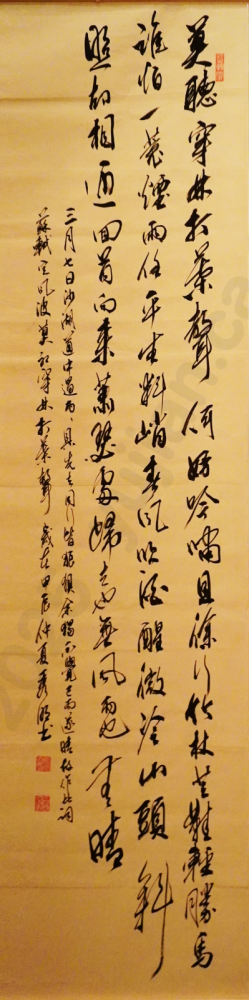 莫聽穿林打葉聲何妨吟嘯且徐行竹杖芒鞋輕勝馬
誰怕一蓑煙雨任平生料峭春風吹酒醒微冷山頭斜
照却相迎回首向來蕭瑟處歸去也無風雨也無晴
三月七日沙湖道中遇雨雨具先去同行皆狼狽余獨不覺已而遂晴故作此詞
蘇軾定風波莫聽穿林打葉聲 歲在甲辰仲夏書